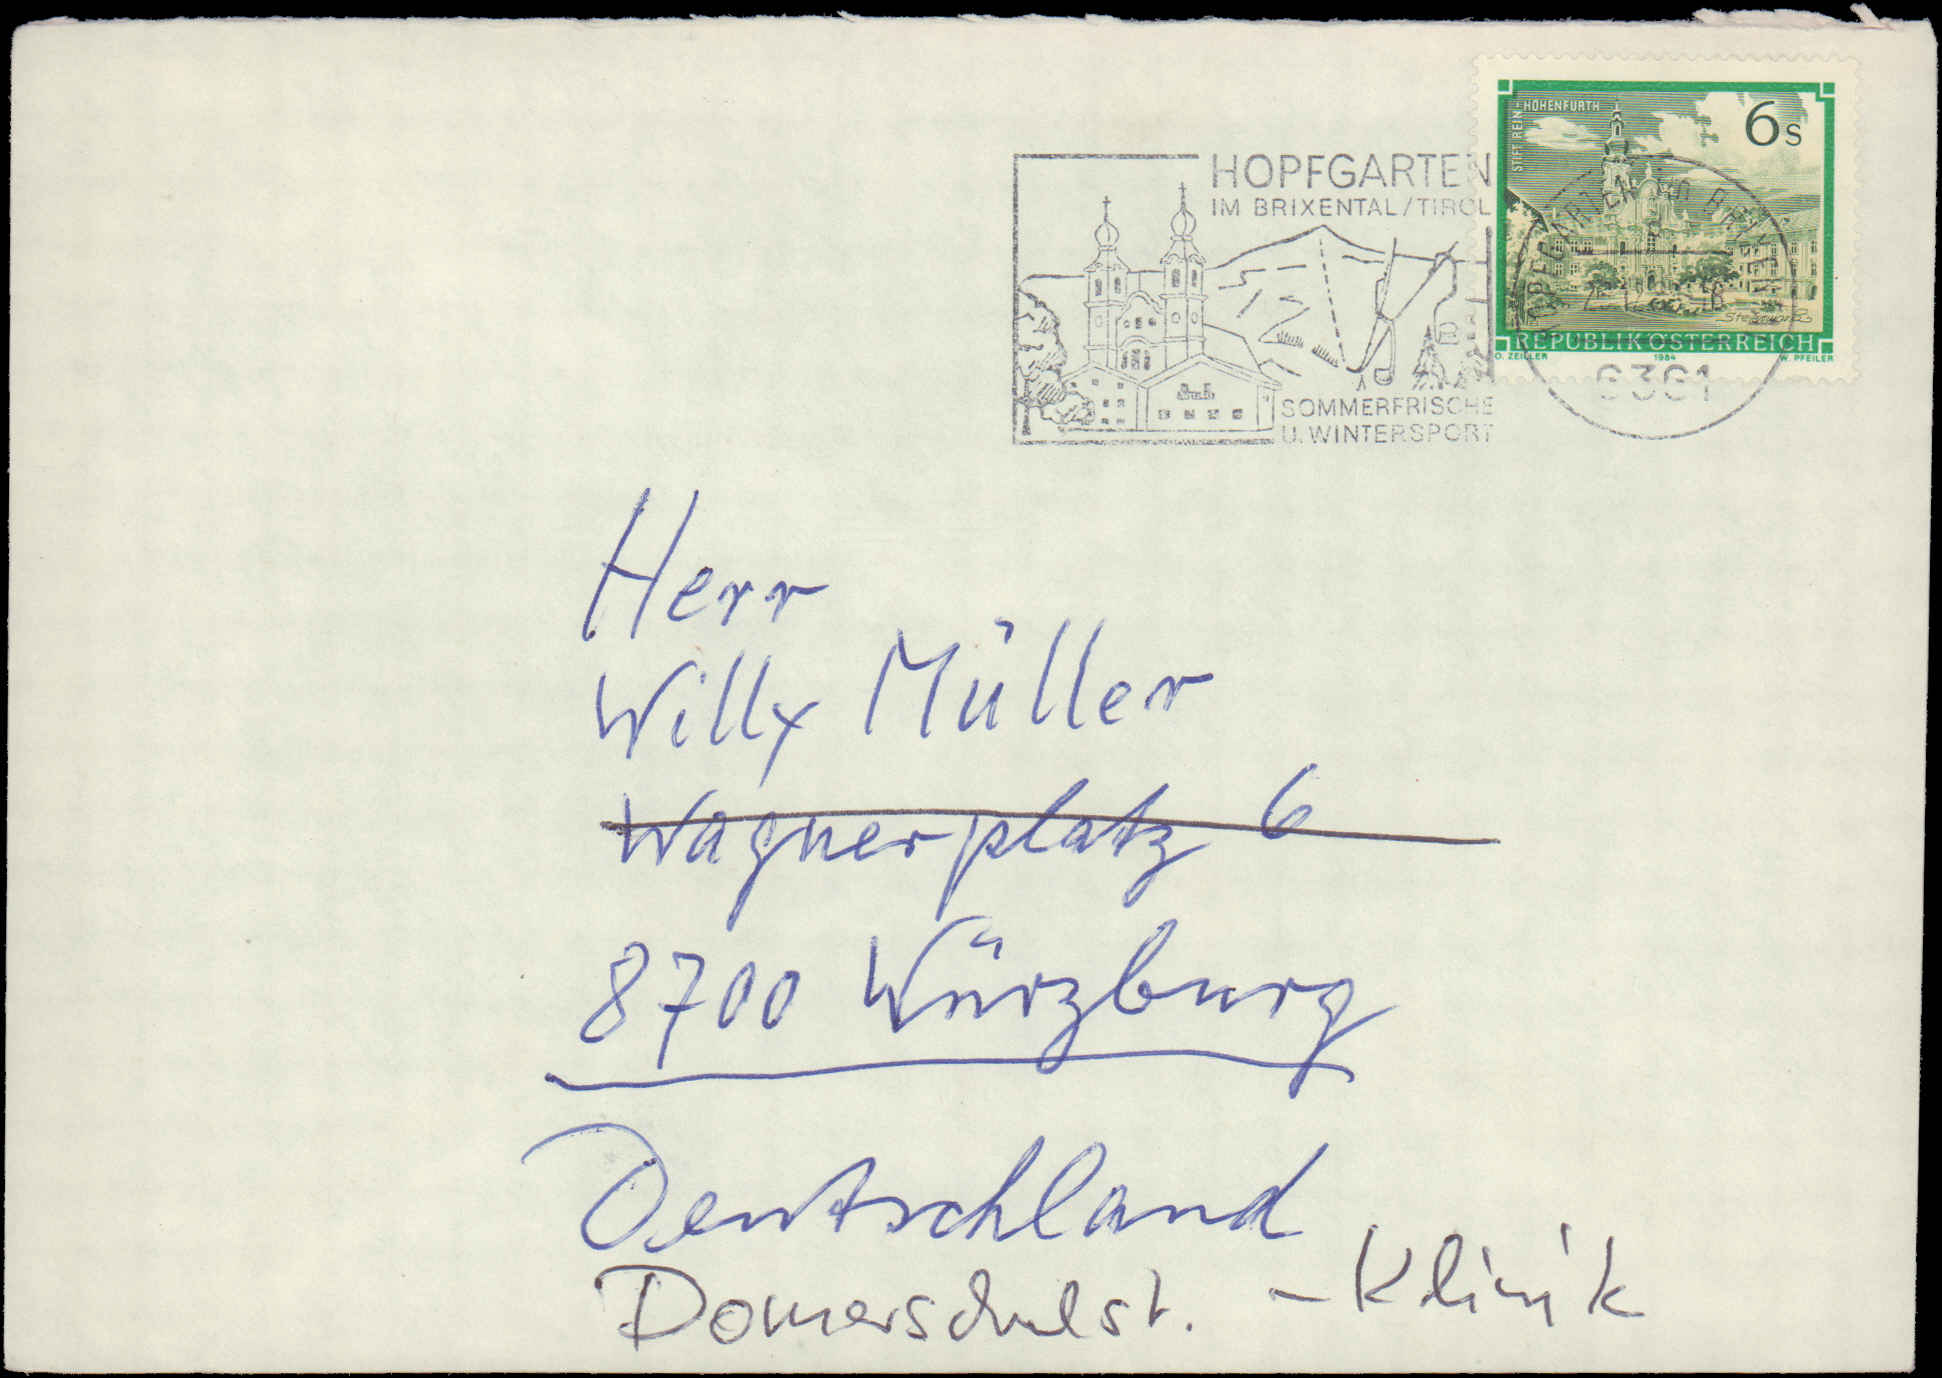 HOPFGARTEN
IM BRIXENTAL/TIROL
SOMMERFRISCHE
U. WINTERSPORT
STIFT REIN-HOHENFURTH
6 S
REPUBLIK ÖSTERREICH
O. ZEILLER 1984 W. PFEILER
HOPFGARTEN IM BRIXENTAL
6361
Herr
Willy Müller
Wagnerplatz 6
8700 Würzburg
Deutschland
Domerschulst. - Klinik